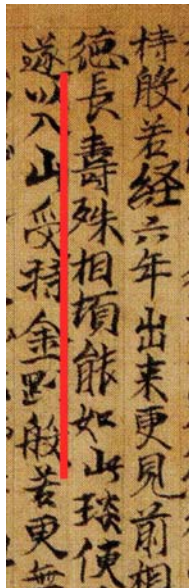 持般若経六年出来更見前相
徳長壽殊相頂能如此琰便
遂以入山受持金剛般若更無